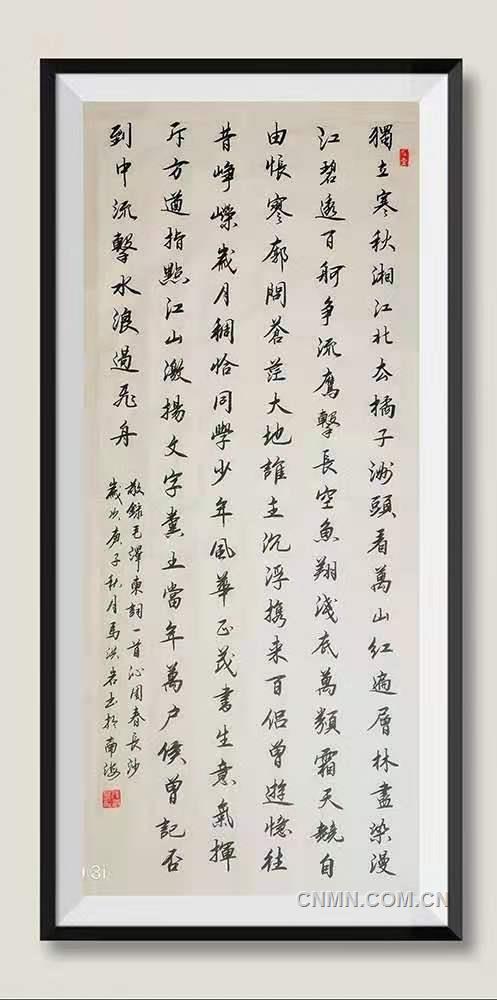 獨立寒秋湘江北去橘子洲頭看萬山紅遍層林盡染漫
江碧透百舸争流鷹擊長空魚翔淺底萬類霜天競自
由悵寥廓問蒼茫大地誰主沉浮携来百侣曾遊憶往
昔崢嶸歲月稠恰同學少年風華正茂書生意氣揮
斥方遒指點江山激揚文字糞土當年萬户侯曾記否
到中流擊水浪遏飛舟
敬錄毛澤東詞一首沁园春長沙
歲次庚子秋月馬洪岩书於南海
CNMN.COM.CN